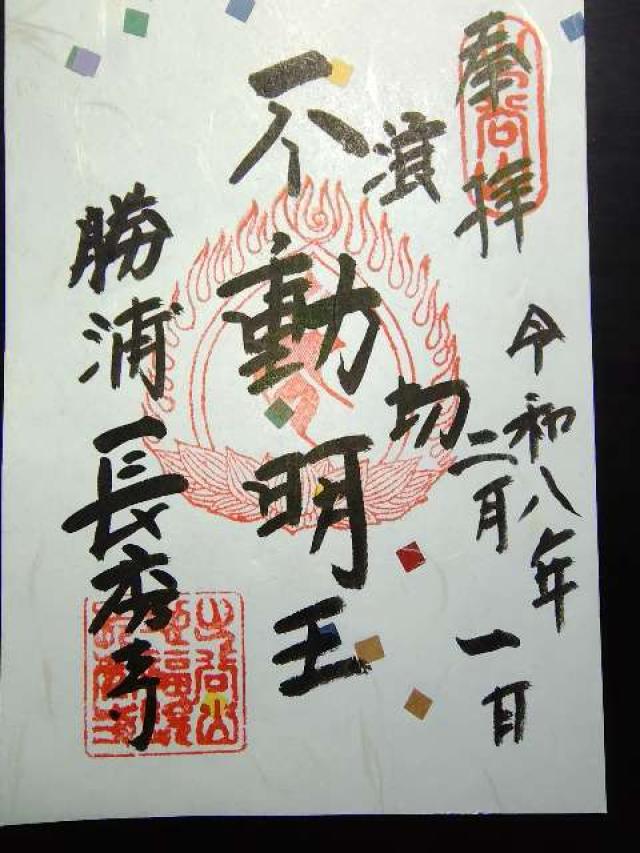 奉拝
令和八年
二月一日
浪切
不動明王
勝浦長秀寺